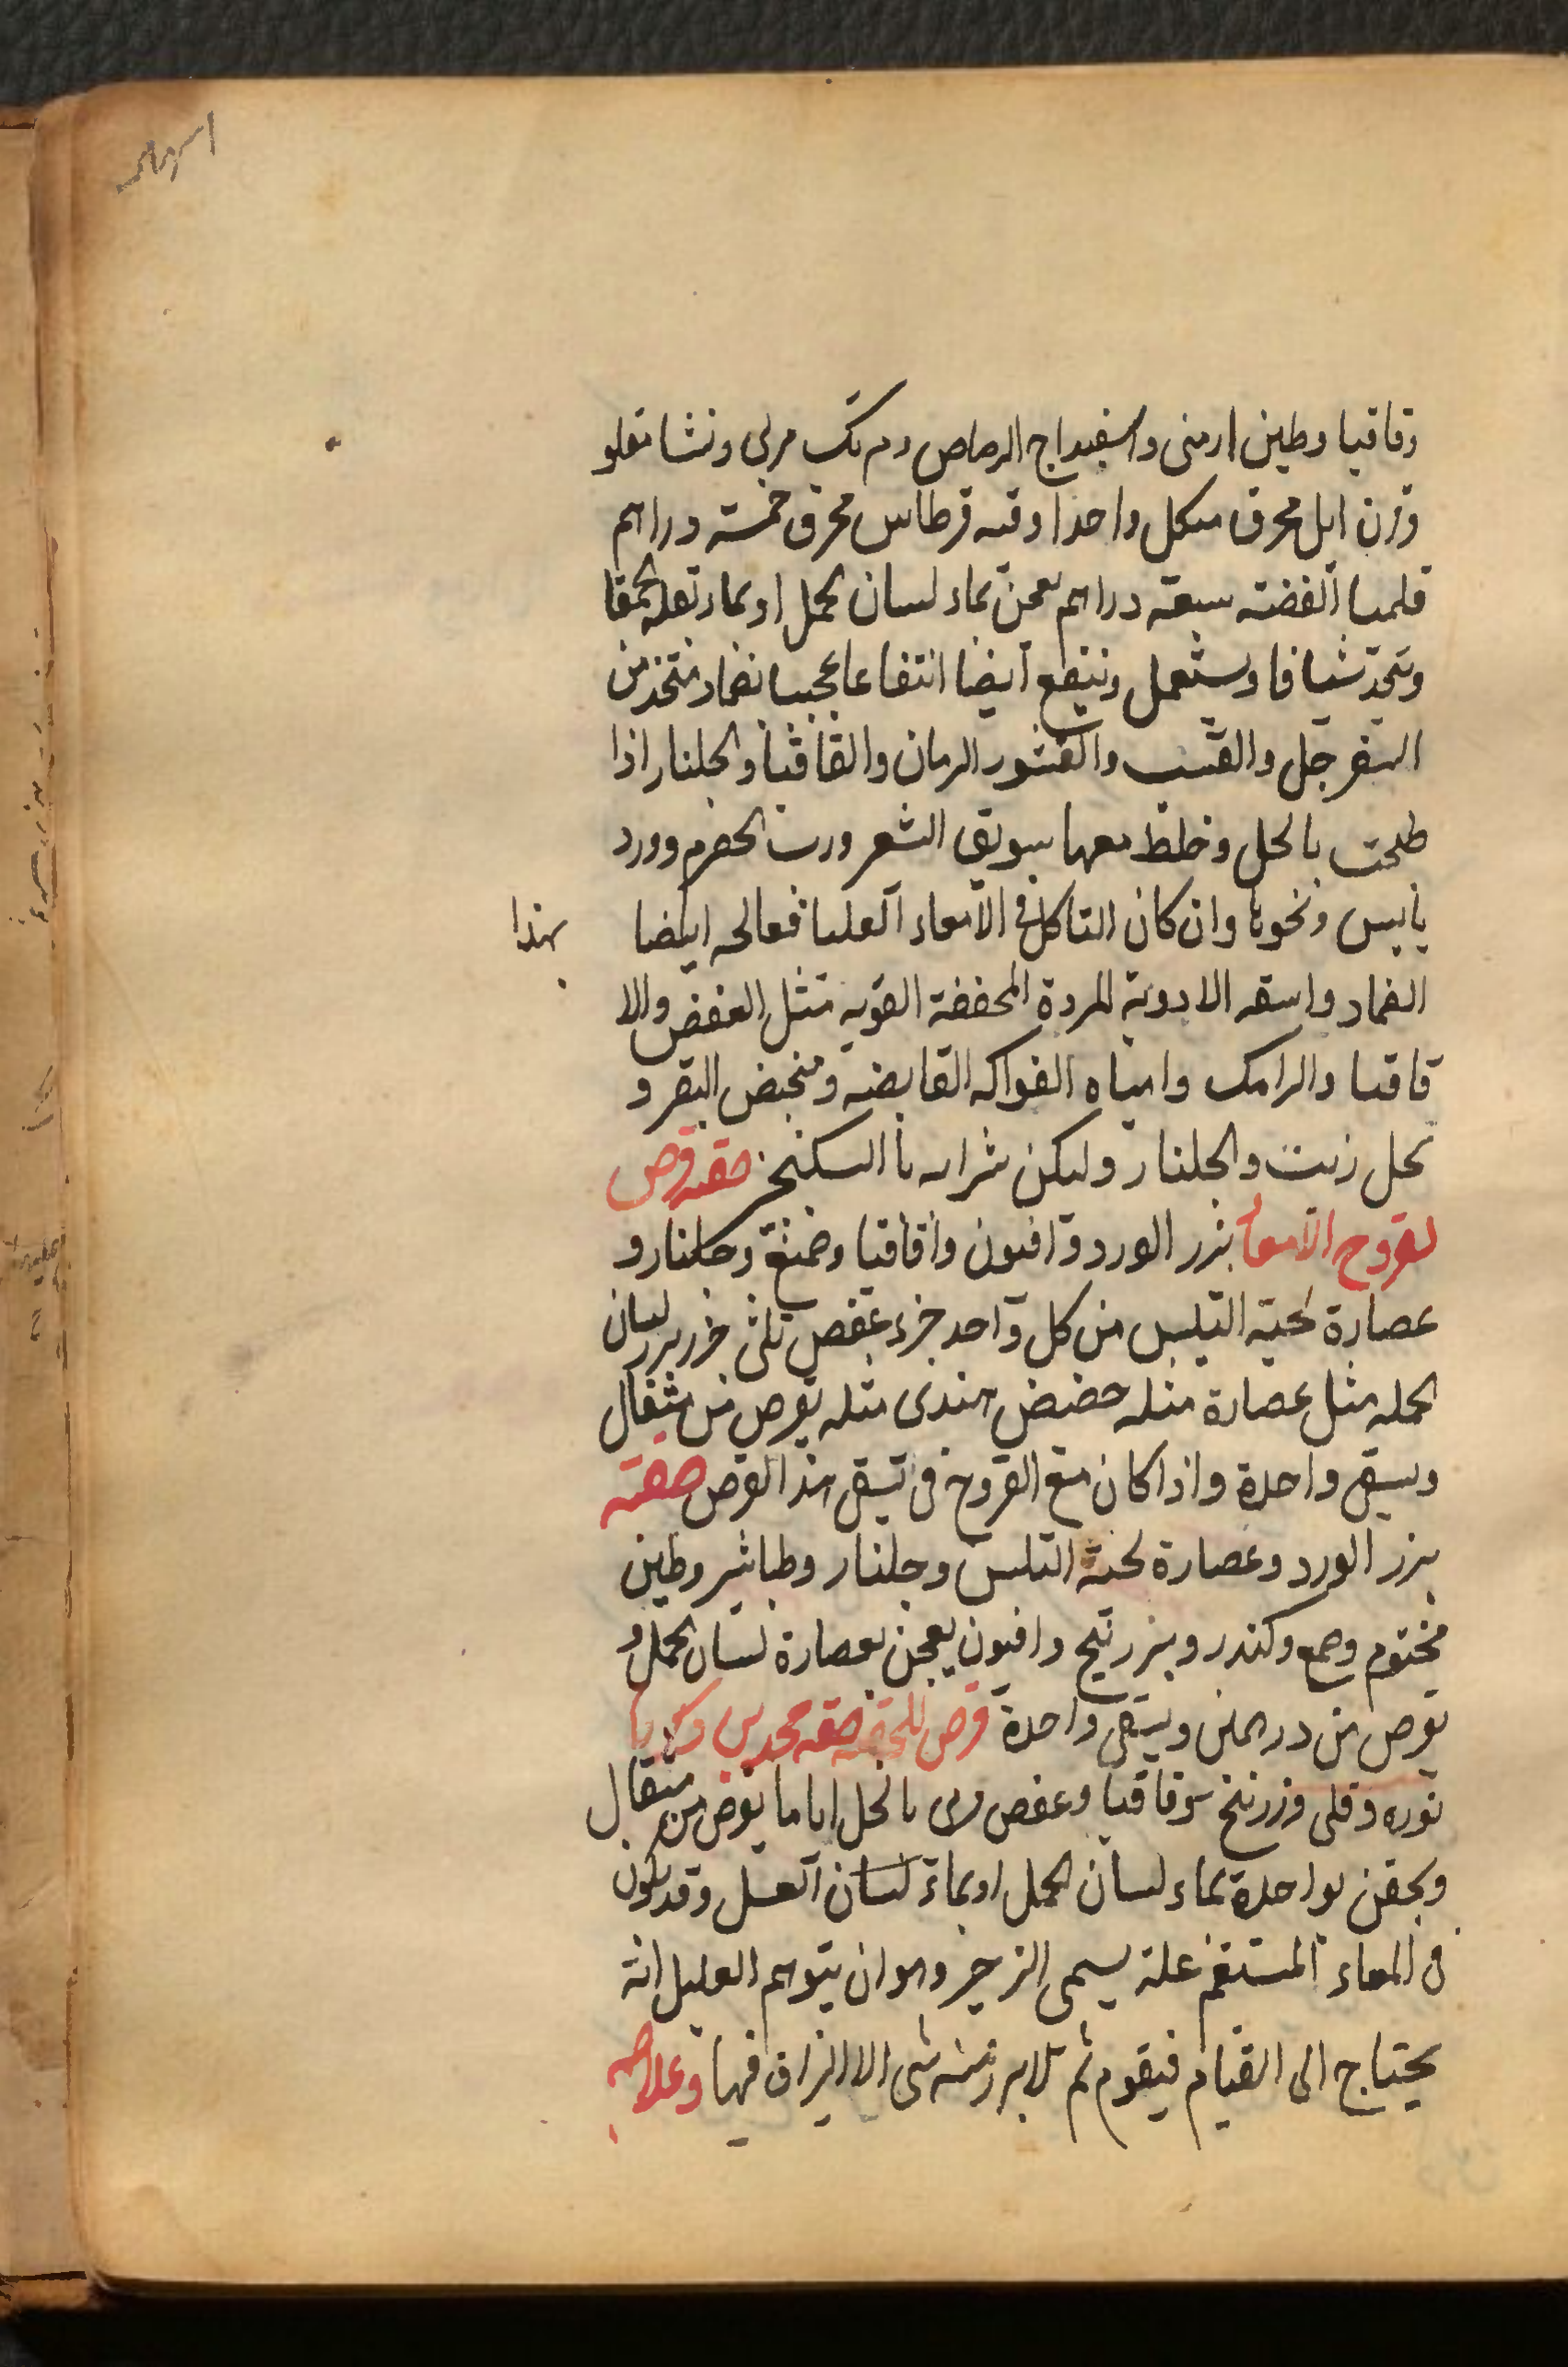 وقاقيا وطين ارمنى واسفيداج الرصاص ومرتك مربى ونشا مقلو
وقرن ايل محرق من كل واحد اوقيه قرطاس محرق خمسة دراهم
قلميا الفضة سبعة دراهم يعجن بماء لسان الحمل او بماء بقلة الحمقا
ويتخذ شيافا ويستعمل وينتفع ايضا انتفاعا عجيبا بضماد متخذ من
السفرجل والقسب والقشور الرمان والقاقيا والجلنار اذا
طبخت بالخل وخلط معها سويق الشعير ورب الحصرم وورد
يابس ونحوها وان كان التاكل فى الامعاء العليا فعالجه ايضا بهذا
الضماد واسقه الادوية المبردة المجففة القوية مثل العفص والا
قاقيا والرامك وامياه الفواكه القابضة ومخيض البقر و
خل زيت والجلنار وليكن شرابه بالسكنجبين صفة قرص
لقروح الامعا بزر الورد وافيون واقاقيا وصمغ وجلنار و
عصارة لحية التيس من كل واحد جزء عفص ثلث جزء بزر لسان
الحمل مثل عصارة مثله حضض هندى مثله يقرص من مثقال
ويسقى واحدة واذا كان مع القروح قى تسقى هذا القرص صفته
بزر الورد وعصارة لحية التيس وجلنار وطباشير وطين
مختوم وصمغ وكندر وبزر بنج وافيون يعجن بعصارة لسان الحمل و
يقرص من درهمين ويسقى واحدة قرص للحقنه صفه محمد بن زكريا
نوره وقلى وزرنيخ وقاقيا وعفص يربى بالخل اياما يقرص من مثقال
ويحقن بواحدة بماء لسان الحمل او بماء لسان العسل وقد يكون
فى المعاء المستقيم علة يسمى الزحير وهو ان يتوهم العليل انه
يحتاج الى القيام فيقوم ثم لا يبرز منه شى الا البزاق فيها وعلاجه